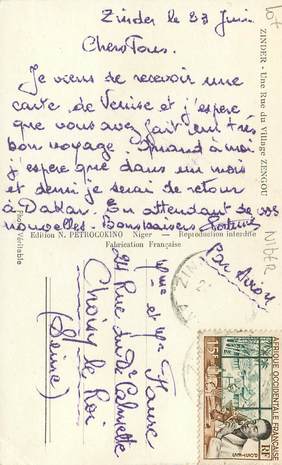 Zinder le 23 Juin
Chers Tous.
Je viens de recevoir une
carte de Venise et j'espère
que vous avez fait un très
bon voyage. Quand à moi
j'espère que dans un mois
et demi je serai de retour
à Dakar. En attendant de vos
nouvelles. Bons baisers
ZINDER - Une Rue du Village ZENGOU
Photo Véritable
Edition N. PETROCOKINO Niger — Reproduction interdite
Fabrication Française
lot
NIGER
Par Avion
Mme et Mr
24 Rue du Dr Calmette
Choisy le Roi
(Seine)
ZIND
15F
AFRIQUE OCCIDENTALE FRANÇAISE
RF